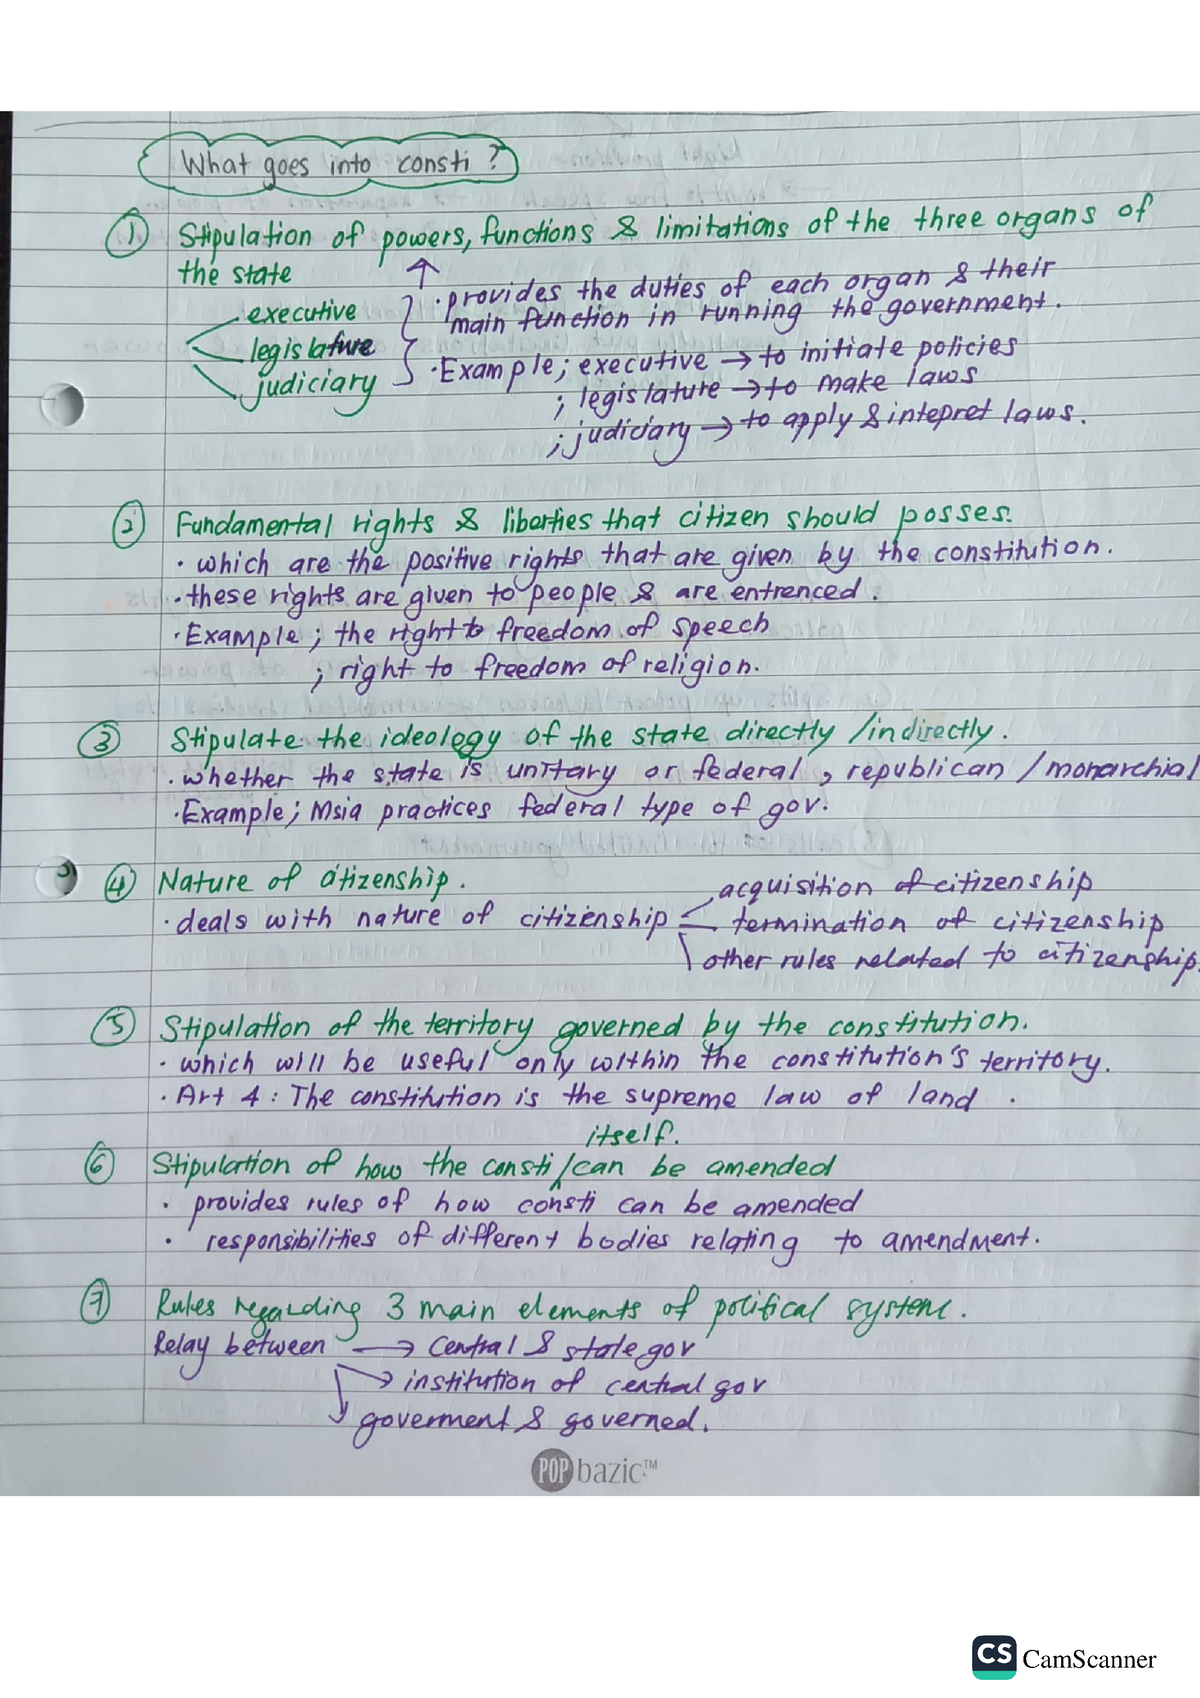 What goes into consti ?
① Stipulation of powers, functions & limitations of the three organs of
the state
executive
legislature
judiciary
· provides the duties of each organ & their
main function in running the government.
· Example; executive → to initiate policies
; legislature → to make laws
; judiciary → to apply & intepret laws.
② Fundamental rights & liberties that citizen should posses.
· which are the positive rights that are given by the constitution.
· these rights are given to people & are entrenced.
· Example; the right to freedom of speech
; right to freedom of religion.
③ Stipulate the ideology of the state directly / indirectly.
· whether the state is unitary or federal, republican / monarchial
· Example; Msia practices federal type of gov.
④ Nature of citizenship.
· deals with nature of citizenship
acquisition of citizenship
termination of citizenship
other rules related to citizenship.
⑤ Stipulation of the territory governed by the constitution.
· which will be useful only within the constitution's territory.
· Art 4 : The constitution is the supreme law of land .
itself.
⑥ Stipulation of how the consti / can be amended
· provides rules of how consti can be amended
· responsibilities of different bodies relating to amendment.
⑦ Rules regarding 3 main elements of political system.
Relay between → Central & state gov
→ institution of central gov
government & governed.
POP bazic™
CS CamScanner